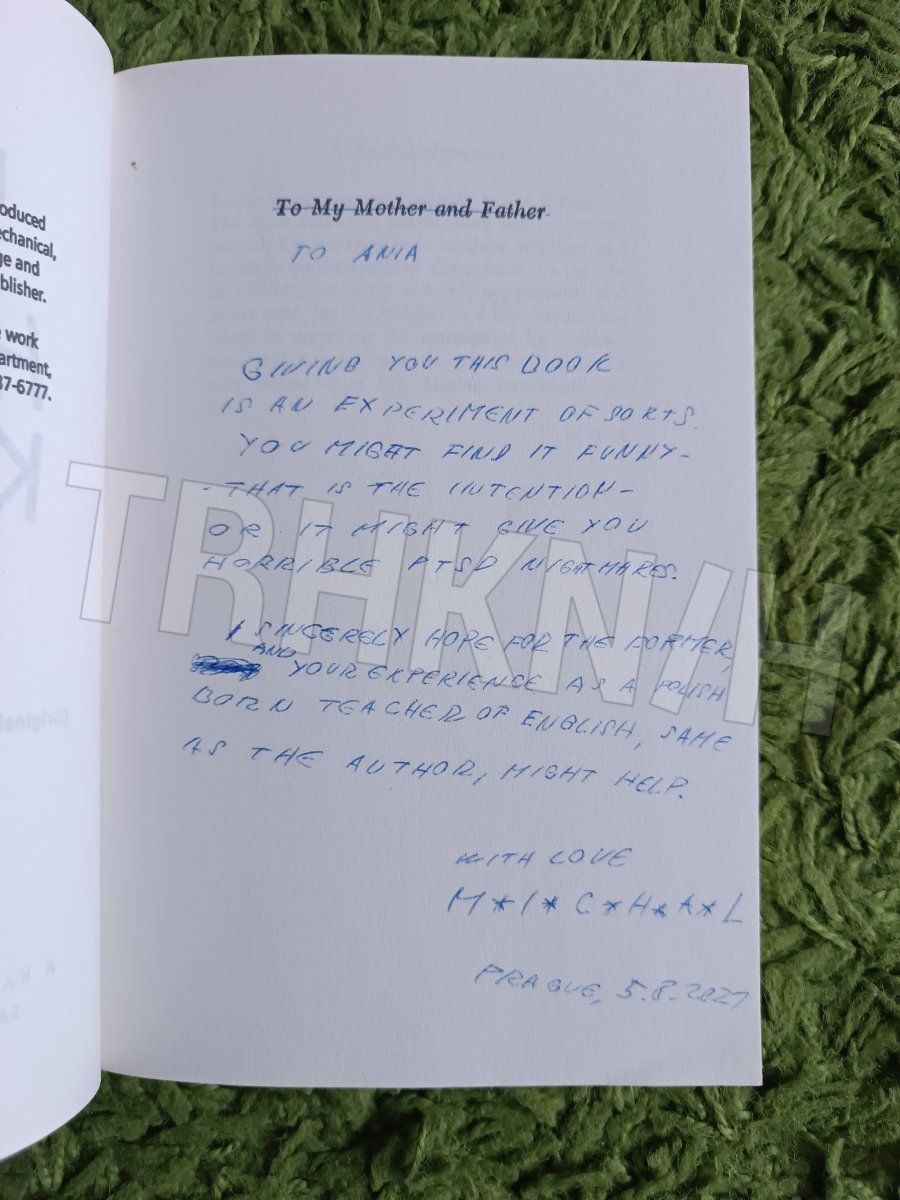 oduced
echanical,
ge and
blisher.
work
artment,
37-6777.
K
To My Mother and Father
TO ANIA
GIVING YOU THIS BOOK
IS AN EXPERIMENT OF SORTS.
YOU MIGHT FIND IT FUNNY-
- THAT IS THE INTENTION -
OR IT MIGHT GIVE YOU
HORRIBLE PTSD NIGHTMARES.
I SINCERELY HOPE FOR THE FORMER,
AND YOUR EXPERIENCE AS A POLISH
BORN TEACHER OF ENGLISH, SAME
AS THE AUTHOR, MIGHT HELP.
WITH LOVE
M*I*C*H*A*L
PRAGUE, 5.8.2021
TRHKN/H